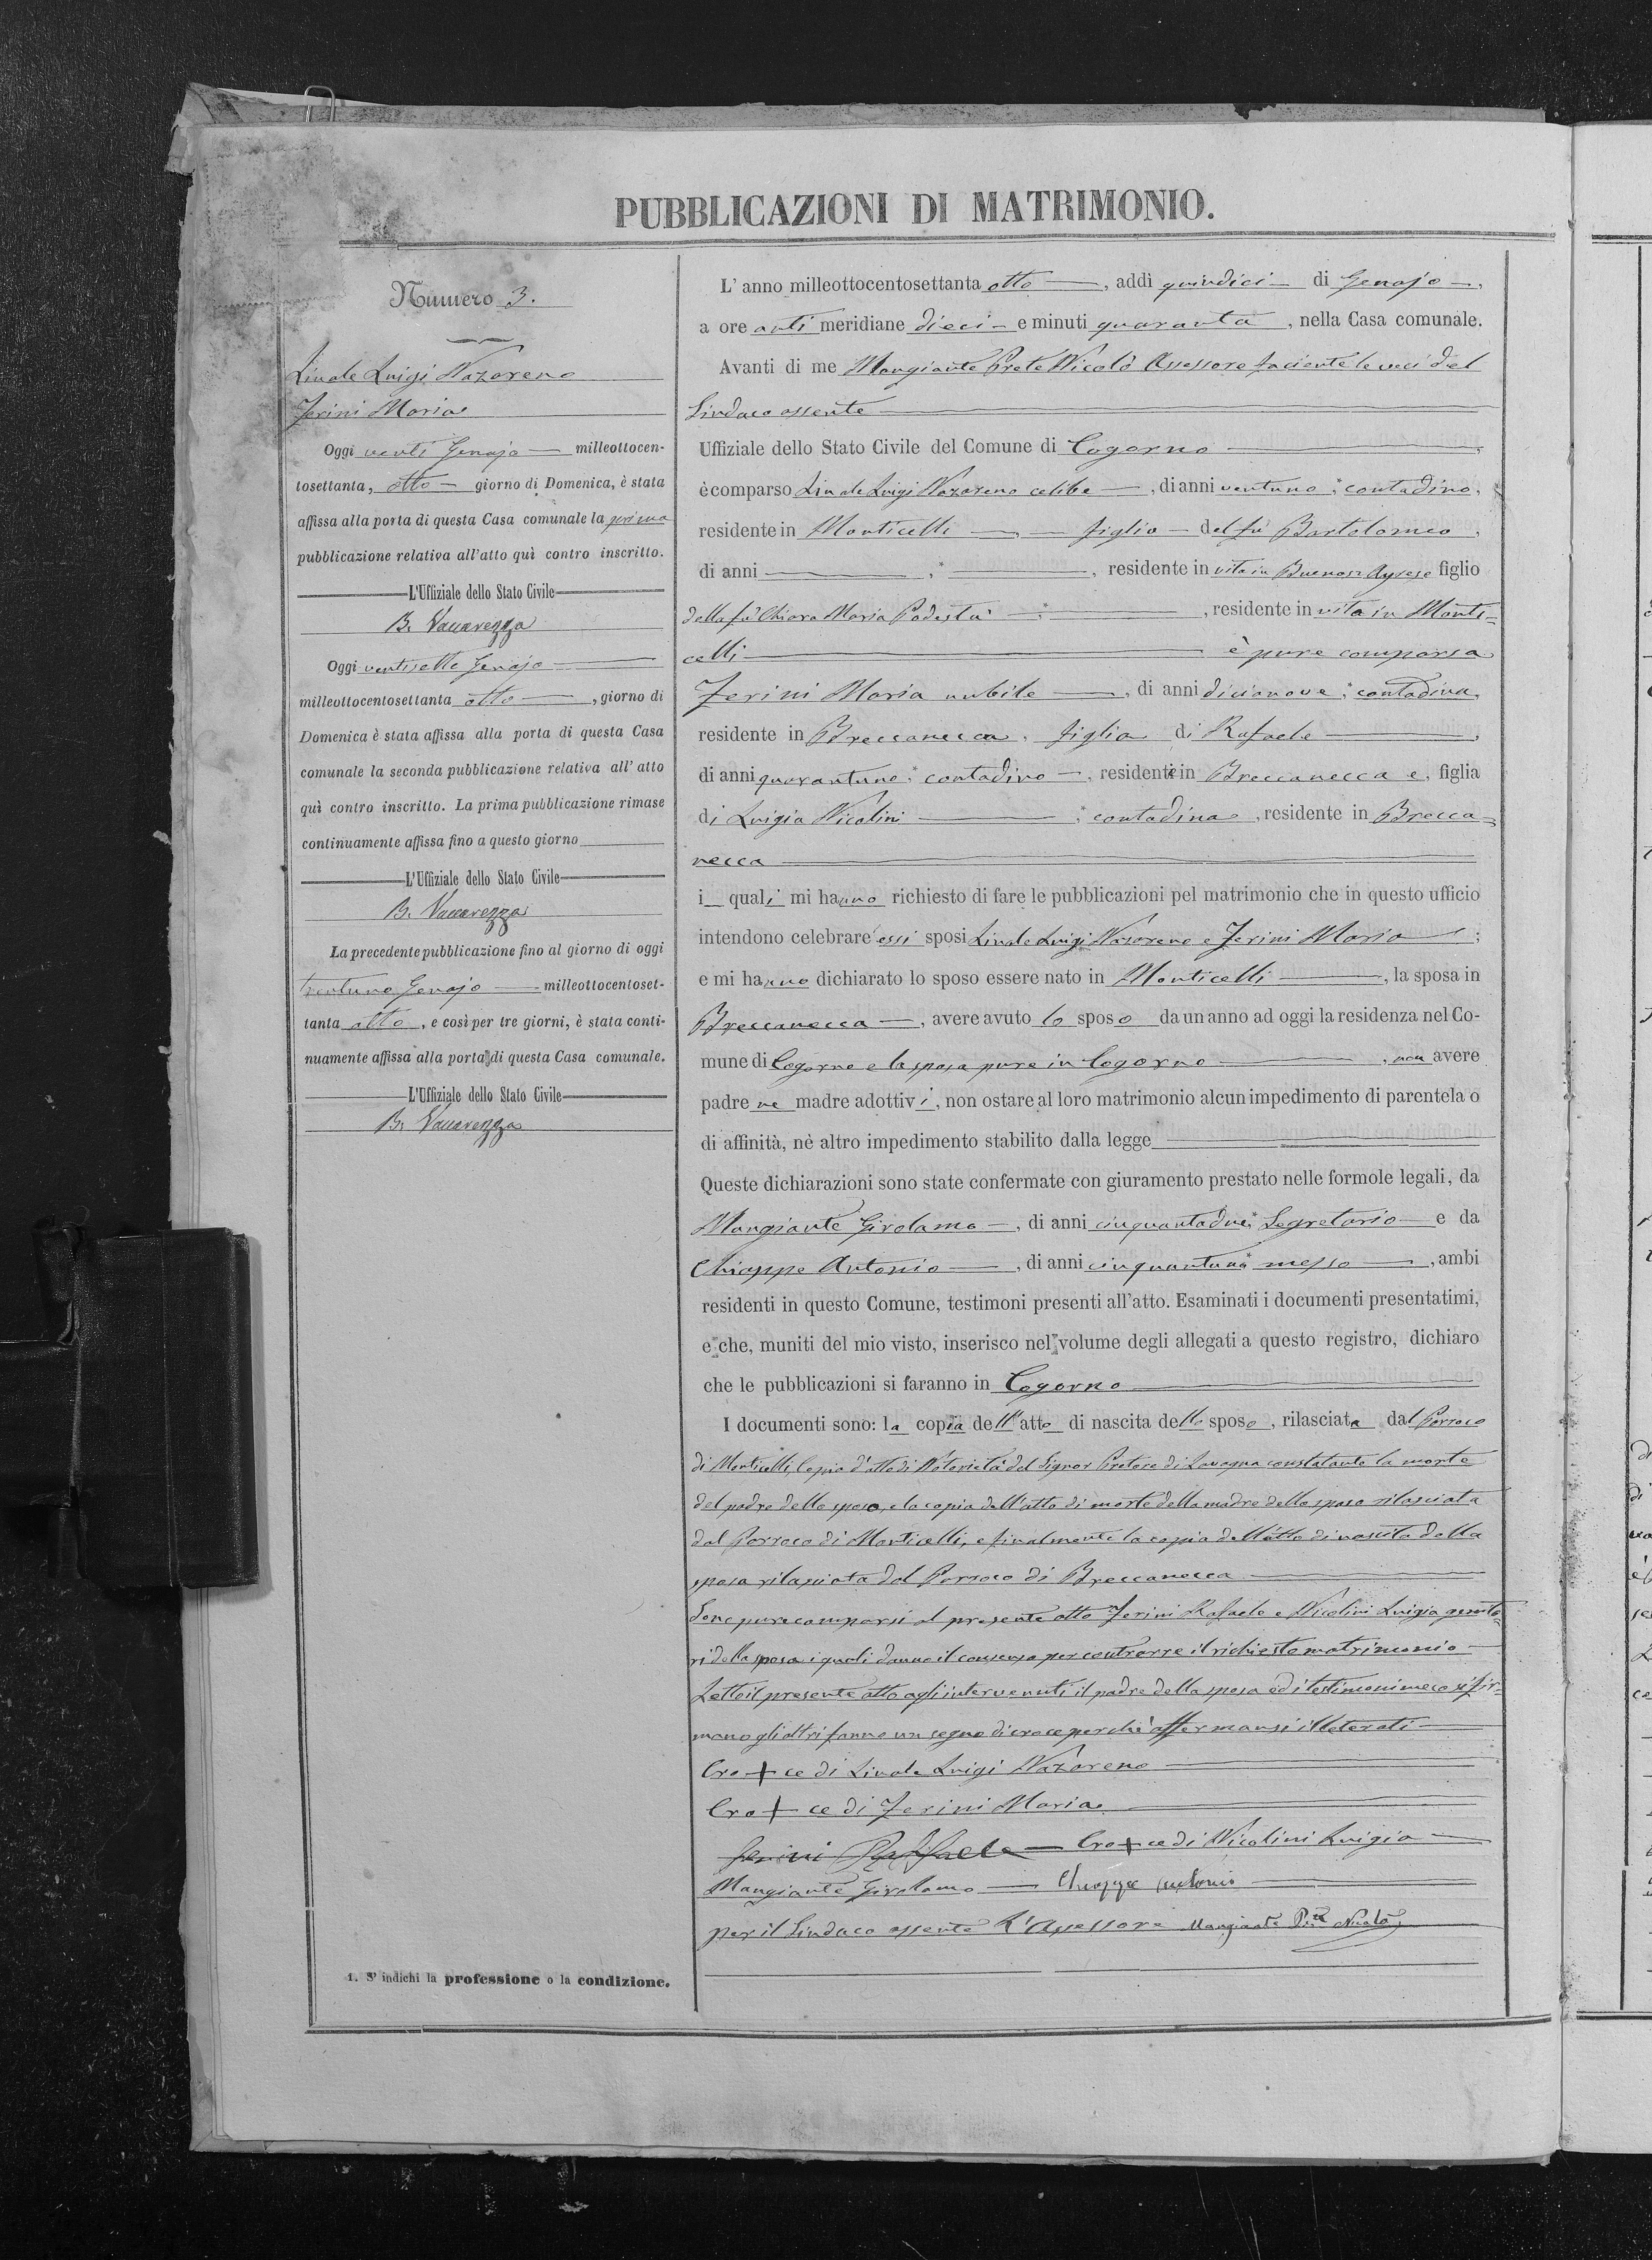 PUBBLICAZIONI DI MATRIMONIO.
Numero 3.
Linale Luigi Nazareno
Zerini Maria
Oggi venti Genajo milleottocen-
tosettanta, otto giorno di Domenica, è stata
affissa alla porta di questa Casa comunale la prima
pubblicazione relativa all'atto quì contro inscritto.
L'Uffiziale dello Stato Civile
B. Vaccarezza
Oggi ventisette Genajo
milleottocentosettanta otto, giorno di
Domenica è stata affissa alla porta di questa Casa
comunale la seconda pubblicazione relativa all'atto
quì contro inscritto. La prima pubblicazione rimase
continuamente affissa fino a questo giorno
L'Uffiziale dello Stato Civile
B. Vaccarezza
La precedente pubblicazione fino al giorno di oggi
trentuno Genajo milleottocentoset-
tanta otto, e così per tre giorni, è stata conti-
nuamente affissa alla porta di questa Casa comunale.
L'Uffiziale dello Stato Civile
B. Vaccarezza
1. S'indichi la professione o la condizione.
L'anno milleottocentosettanta otto, addì quindici di Genajo,
a ore anti meridiane dieci e minuti quaranta, nella Casa comunale.
Avanti di me Mangiante Prete Nicolò Assessore faciente le veci del
Sindaco assente
Uffiziale dello Stato Civile del Comune di Cogorno
è comparso Linale Luigi Nazareno celibe, di anni ventuno, contadino,
residente in Monticelli figlio del fù Bartolomeo,
di anni , residente in vita in Buenos Ayrese figlio
della fù Chiara Maria Podestà , residente in vita in Monti-
celli è pure comparsa
Zerini Maria nubile, di anni dicianove, contadina,
residente in Breccanecca, figlia di Rafaele,
di anni quarantuno, contadino, residente in Breccanecca e, figlia
di Luigia Nicolini, contadina, residente in Brecca=
necca
i quali mi hanno richiesto di fare le pubblicazioni pel matrimonio che in questo ufficio
intendono celebrare essi sposi Linale Luigi Nazareno e Zerini Maria;
e mi hanno dichiarato lo sposo essere nato in Monticelli, la sposa in
Breccanecca, avere avuto lo sposo da un anno ad oggi la residenza nel Co-
mune di Cogorno e la sposa pure in Cogorno, non avere
padre ne madre adottivi, non ostare al loro matrimonio alcun impedimento di parentela o
di affinità, nè altro impedimento stabilito dalla legge
Queste dichiarazioni sono state confermate con giuramento prestato nelle formole legali, da
Mangiante Girolamo, di anni cinquantadue, Segretario e da
Chiappe Antonio, di anni cinquantuno messo, ambi
residenti in questo Comune, testimoni presenti all'atto. Esaminati i documenti presentatimi,
e che, muniti del mio visto, inserisco nel volume degli allegati a questo registro, dichiaro
che le pubblicazioni si faranno in Cogorno
I documenti sono: la copia dell'atto di nascita dello sposo, rilasciata dal Parroco
di Monticelli, Copia d'atto di Notorietà del Signor Pretore di Lavagna constatante la morte
del padre dello sposo, e la copia dell'atto di morte della madre dello sposo rilasciata
dal Parroco di Monticelli, e finalmente la copia dell'atto di nascita della
sposa rilasciata dal Parroco di Breccanecca
Sono pure comparsi al presente atto Zerini Rafaele e Nicolini Luigia genito-
ri della sposa i quali danno il consenso per contrarre il richiesto matrimonio
Letto il presente atto agli intervenuti il padre della sposa ed i testimoni meco si fir=
mano gli altri fanno un segno di croce perchè affermansi illeterati
Cro+ce di Linale Luigi Nazareno
Cro+ce di Zerini Maria
Serini Raffaele Cro+ce di Nicolini Luigia
Mangiante Girolamo Chiappe Antonio
per il Sindaco assente L'Assessore Mangiante Pte Nicolò